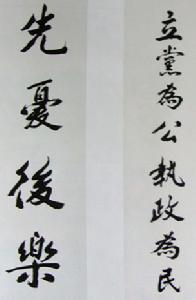 立黨為公執政為民
先憂後樂